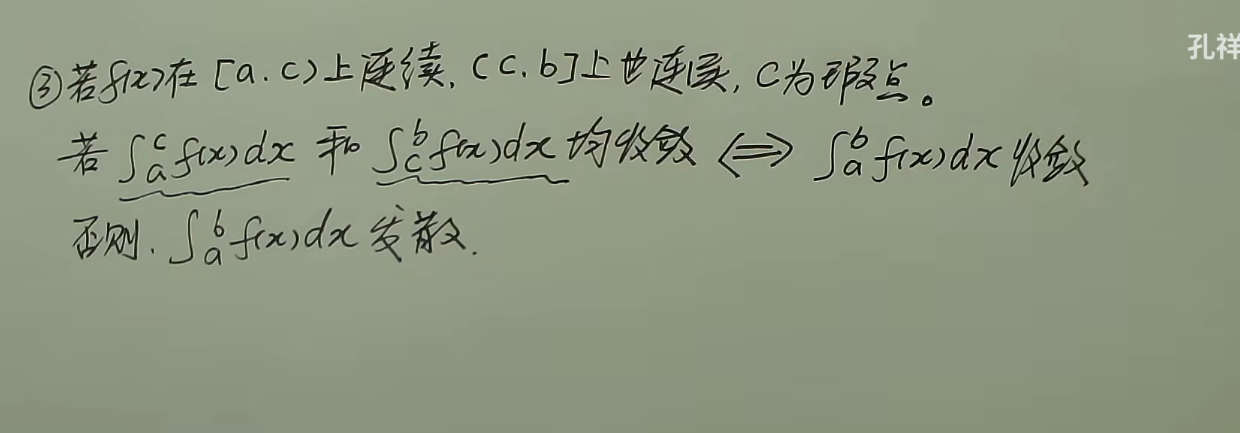 ③若f(x)在[a.c)上连续,(c,b]上也连续,c为瑕点。
若∫ₐᶜf(x)dx 和 ∫꜀ᵇf(x)dx 均收敛 ⟺ ∫ₐᵇf(x)dx收敛
否则.∫ₐᵇf(x)dx发散.
孔祥